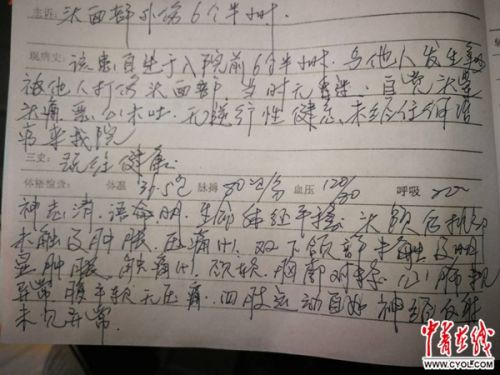 主诉：头面部外伤6个半小时.
现病史：该患自述于入院前6个半小时.与他人发生争
被他人打伤头面部.当时无昏迷.自觉头晕
头痛.恶心未吐.无逆行性健忘.未经任何治
来我院
三史：既往健康.
体格检查： 体温 36.5℃ 脉搏 80次/分 血压 120/80 呼吸 20
神志清.语言明.生命体征平稳.头颅
未触及肿胀.压痛(+).双下颌部未触及明
显肿胀.压痛(+).颈软.胸廓对称.心肺
异常.腹平软无压痛.四肢运动自如.神经反射
未见异常.
中青在线
WWW.CYOL.COM